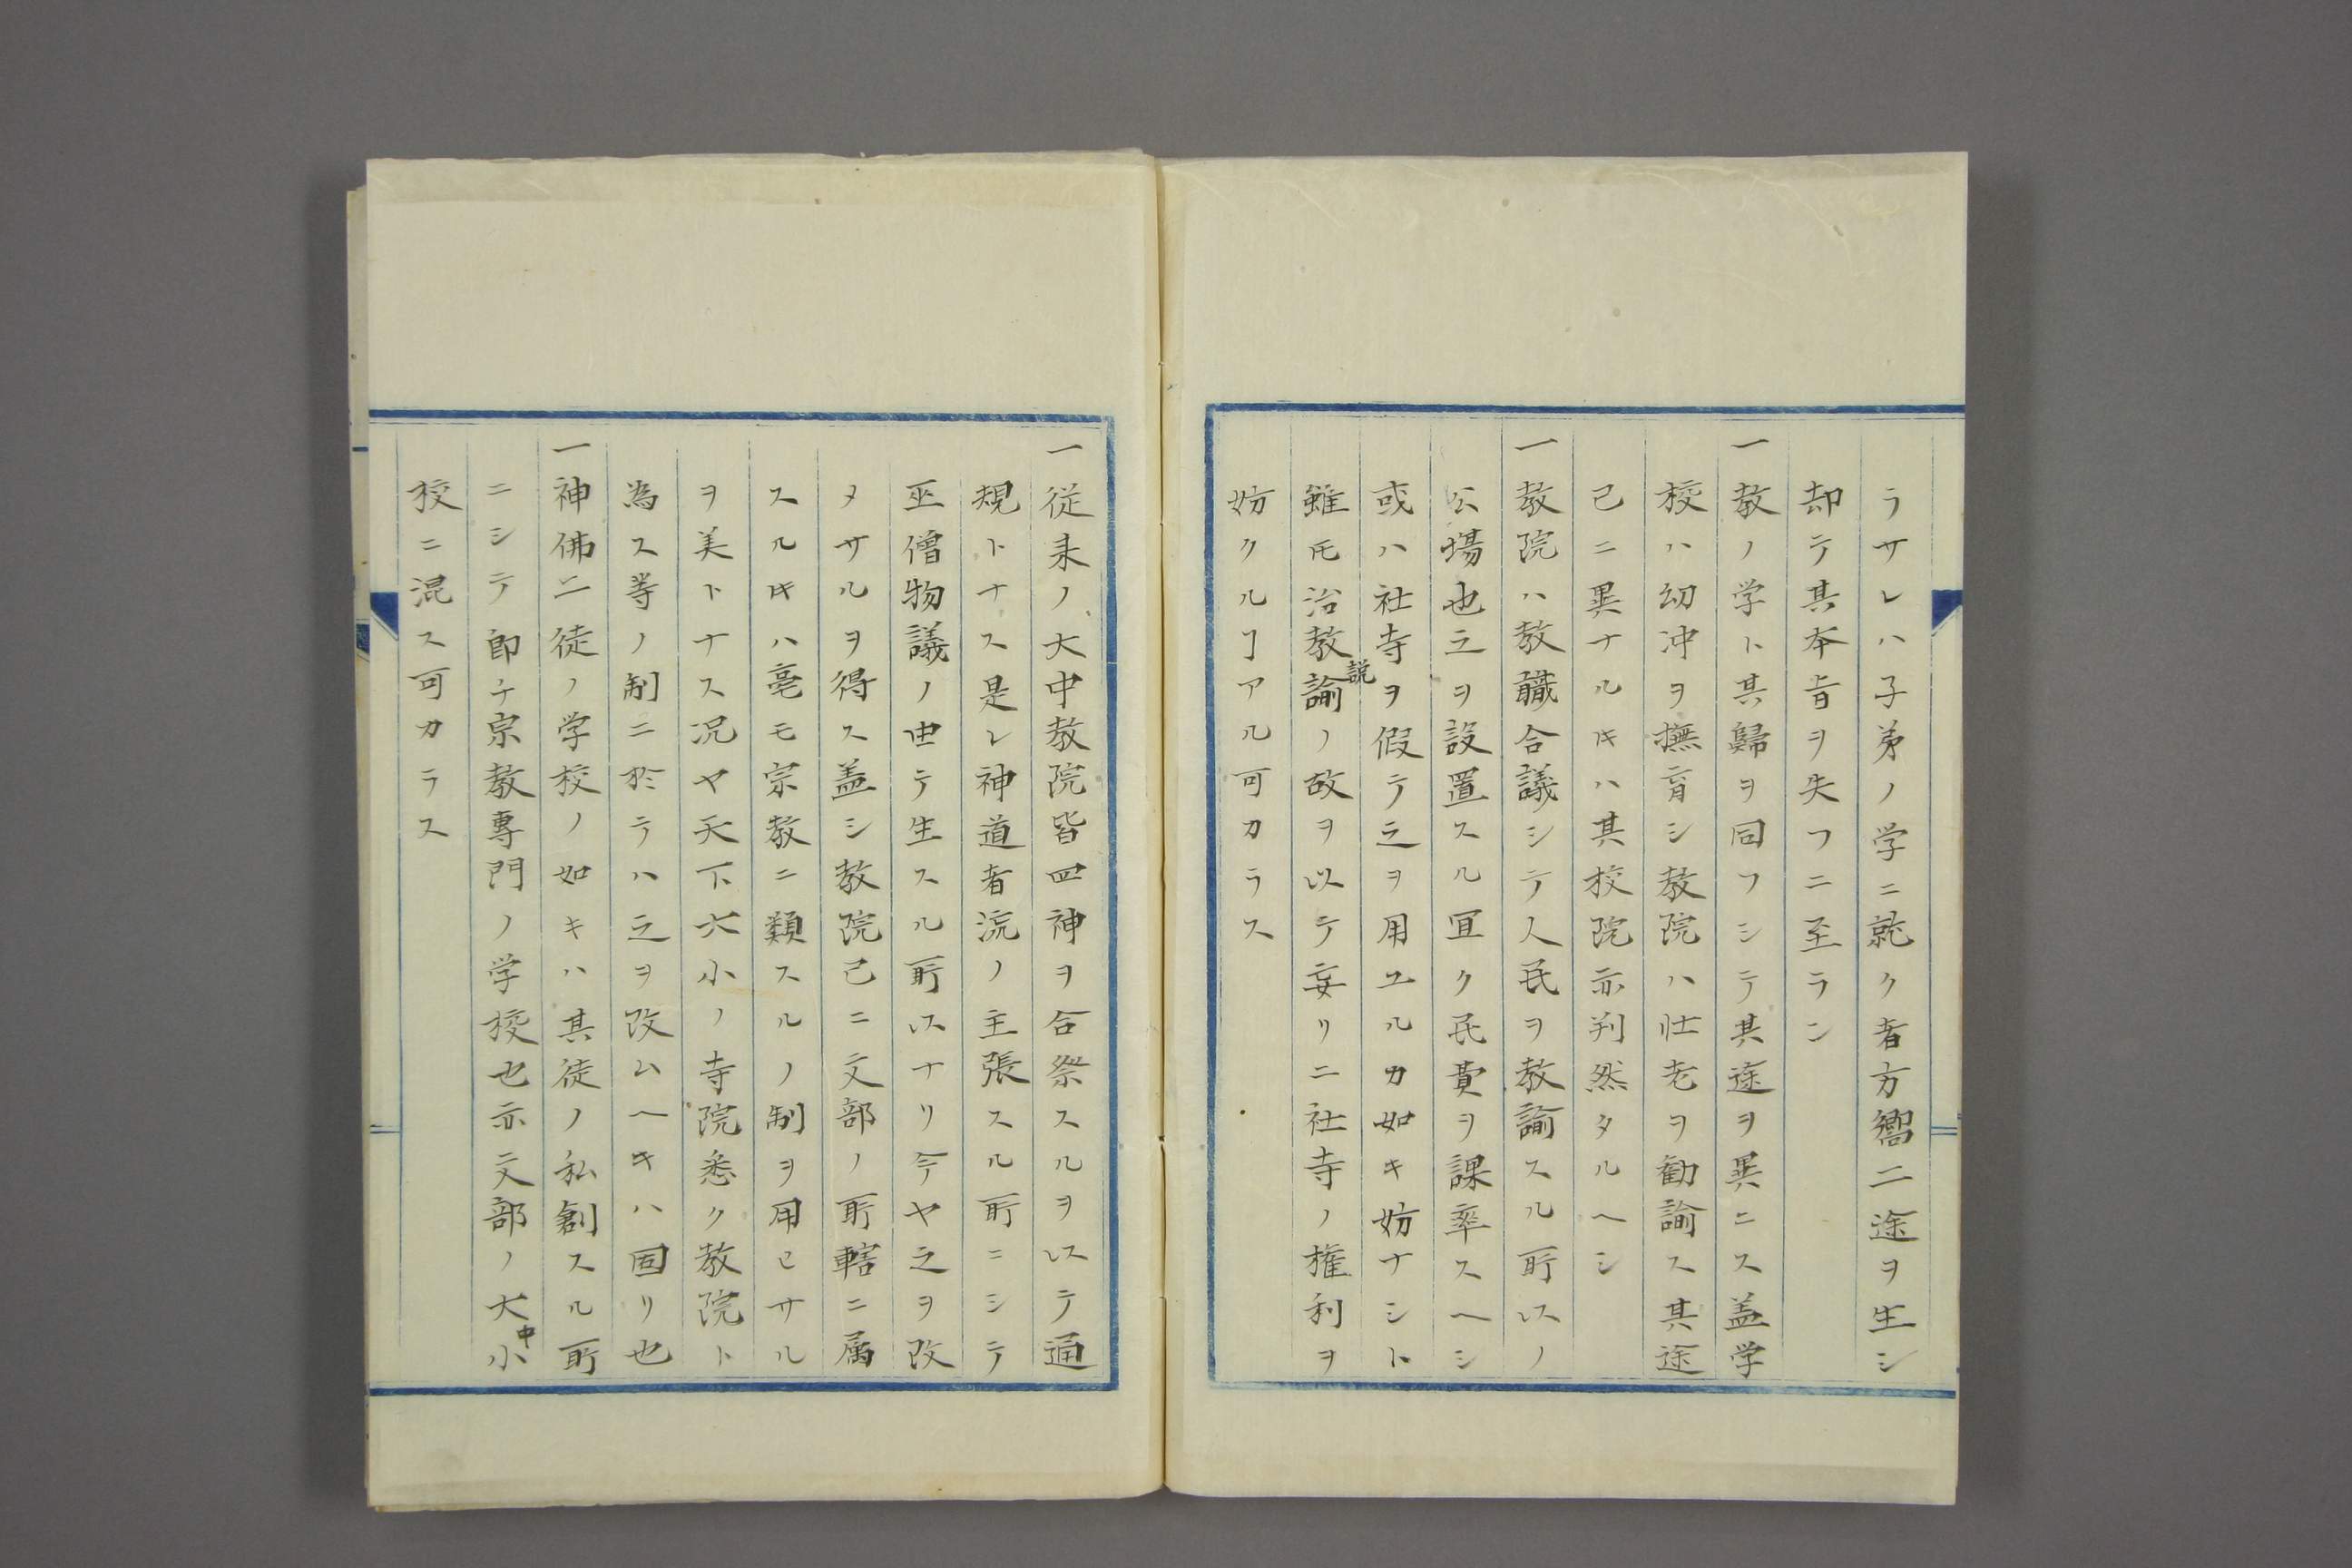 ラサレハ子弟ノ学ニ就ク者方嚮二途ヲ生シ
却テ其本旨ヲ失フニ至ラン
一教ノ学ト其歸ヲ同フシテ其途ヲ異ニス盖学
校ハ幼冲ヲ撫育シ教院ハ壮老ヲ勧諭ス其途
已ニ異ナルキハ其校院亦判然タルヘシ
一教院ハ教職合議シテ人民ヲ教諭スル所以ノ
公場也之ヲ設置スル宜ク民費ヲ課率スヘシ
或ハ社寺ヲ假テ之ヲ用ユルカ如キ妨ナシト
雖モ治教説諭ノ故ヲ以テ妄リニ社寺ノ権利ヲ
妨クルヿアル可カラス
一従来ノ大中教院皆四神ヲ合祭スルヲ以テ通
規トナス是レ神道者流ノ主張スル所ニシテ
巫僧物議ノ由テ生スル所以ナリ今ヤ之ヲ改
メサルヲ得ス盖シ教院已ニ文部ノ所轄ニ属
スルキハ毫モ宗教ニ類スルノ制ヲ用ヒサル
ヲ美トナス况ヤ天下大小ノ寺院悉ク教院ト
為ス等ノ制ニ於テハ之ヲ改ムヘキハ固リ也
一神佛二徒ノ学校ノ如キハ其徒ノ私創スル所
ニシテ即チ宗教專門ノ学校也亦文部ノ大中小
校ニ混ス可カラス